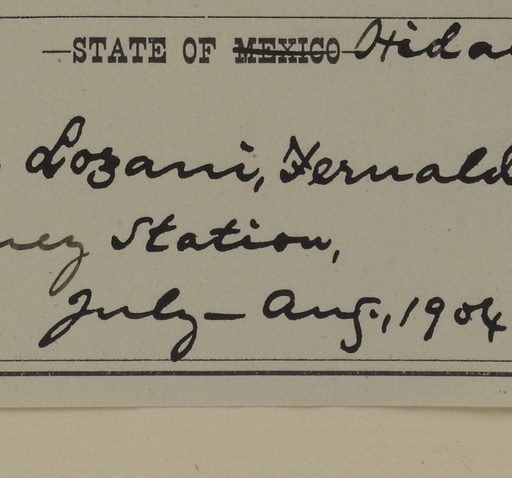 —STATE OF MEXICO— Hida
Lozani, Fernald
nez Station,
July – Aug., 1904